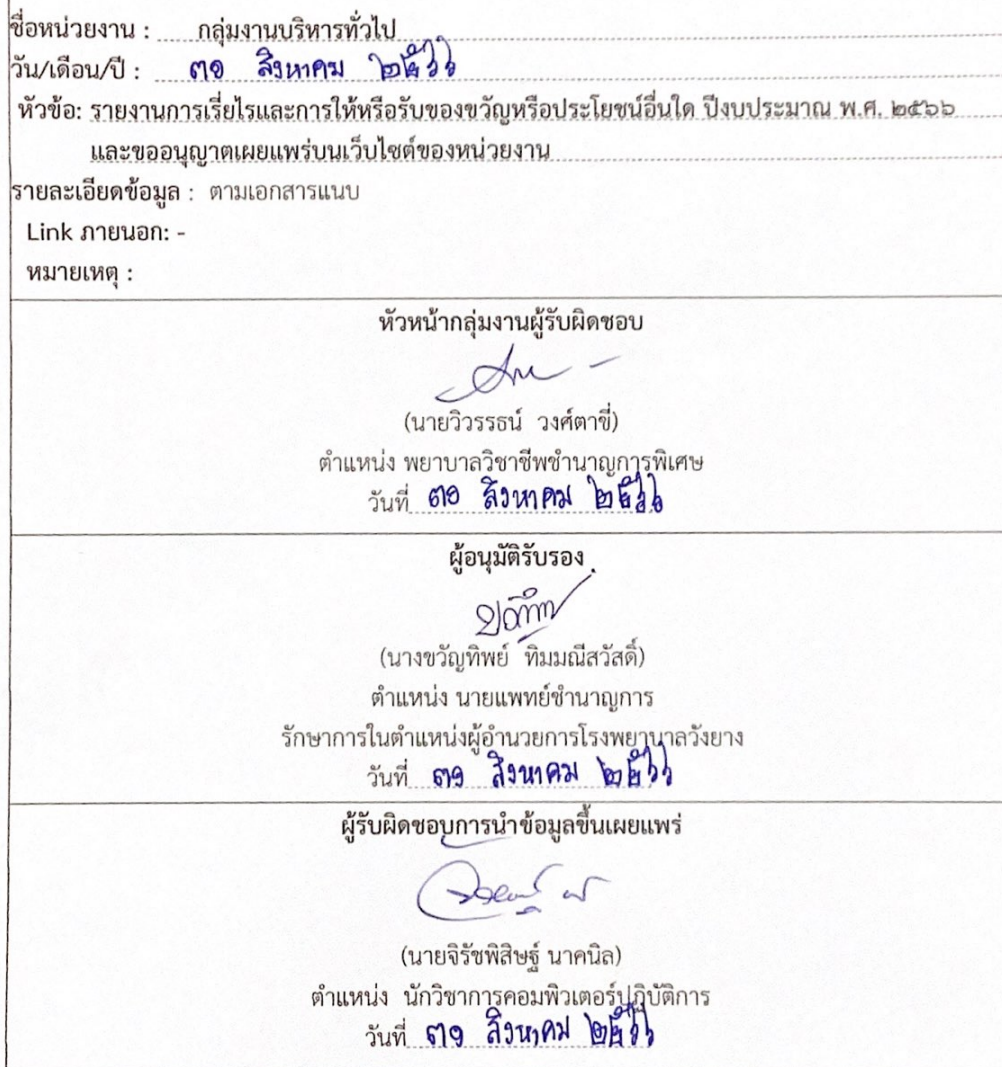 ชื่อหน่วยงาน : กลุ่มงานบริหารทั่วไป
วัน/เดือน/ปี : ๓๑ สิงหาคม ๒๕๖๖
หัวข้อ: รายงานการเรี่ยไรและการให้หรือรับของขวัญหรือประโยชน์อื่นใด ปีงบประมาณ พ.ศ. ๒๕๖๖
และขออนุญาตเผยแพร่บนเว็บไซต์ของหน่วยงาน
รายละเอียดข้อมูล : ตามเอกสารแนบ
Link ภายนอก: -
หมายเหตุ :
หัวหน้ากลุ่มงานผู้รับผิดชอบ
(นายวิวรรธน์ วงศ์ตาขี่)
ตำแหน่ง พยาบาลวิชาชีพชำนาญการพิเศษ
วันที่ ๓๑ สิงหาคม ๒๕๖๖
ผู้อนุมัติรับรอง
(นางขวัญทิพย์ ทิมมณีสวัสดิ์)
ตำแหน่ง นายแพทย์ชำนาญการ
รักษาการในตำแหน่งผู้อำนวยการโรงพยาบาลวังยาง
วันที่ ๓๑ สิงหาคม ๒๕๖๖
ผู้รับผิดชอบการนำข้อมูลขึ้นเผยแพร่
(นายจิรัชพิสิษฐ์ นาคนิล)
ตำแหน่ง นักวิชาการคอมพิวเตอร์ปฏิบัติการ
วันที่ ๓๑ สิงหาคม ๒๕๖๖